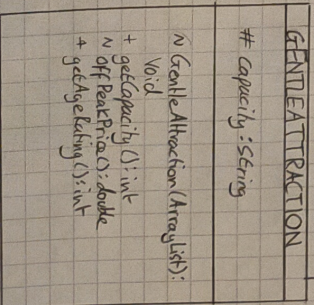 GENTLEATTRACTION
# capacity : String
~ GentleAttraction (ArrayList) :
Void
+ getCapacity () : int
~ offPeakPrice () : double
+ getAgeRating () : int